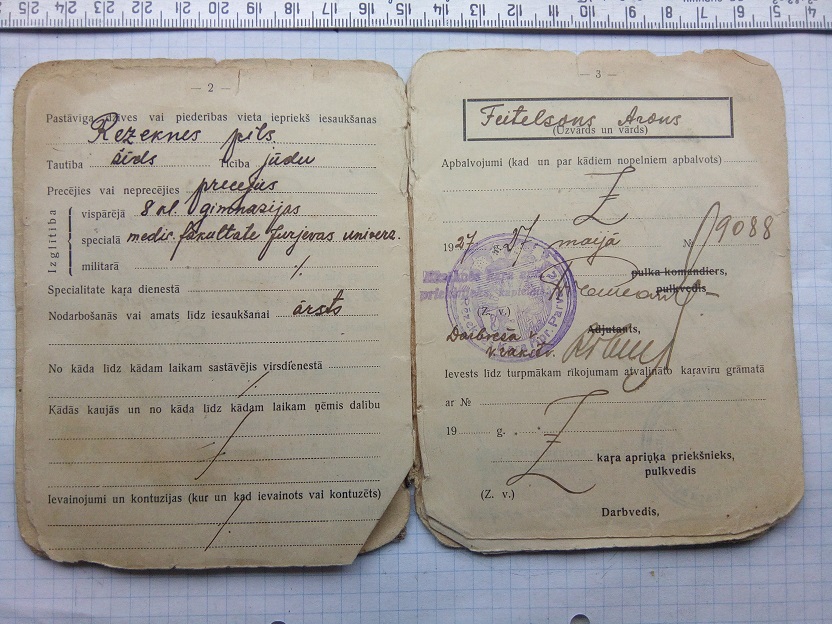 — 2 —
Pastāvīga dzīves vai piederības vieta iepriekš iesaukšanas
Rezeknes pils.
Tautība žīds Ticība jūdu
Precējies vai neprecējies precejies
Izglītība
vispārējā 8 kl. gimnazijas
speciālā medic. fakultate Jurjevas univers.
militarā
Specialitate kaŗa dienestā
Nodarbošanās vai amats līdz iesaukšanai ārsts
No kāda līdz kādam laikam sastāvējis virsdienestā
Kādās kaujās un no kāda līdz kādam laikam ņēmis dalību
Ievainojumi un kontuzijas (kur un kad ievainots vai kontuzēts)
— 3 —
Feitelsons Arons
(Uzvārds un vārds)
Apbalvojumi (kad un par kādiem nopelniem apbalvots)
Z
1927 g. 27. maijā № 19088
pulka komandiers,
pulkvedis
(Z. v.)
Adjutants,
Darbveža v.
Ievests līdz turpmākam rīkojumam atvaļināto karavīru grāmatā
ar №
19 g.
Z
kaŗa apriņķa priekšnieks,
pulkvedis
(Z. v.)
Darbvedis,